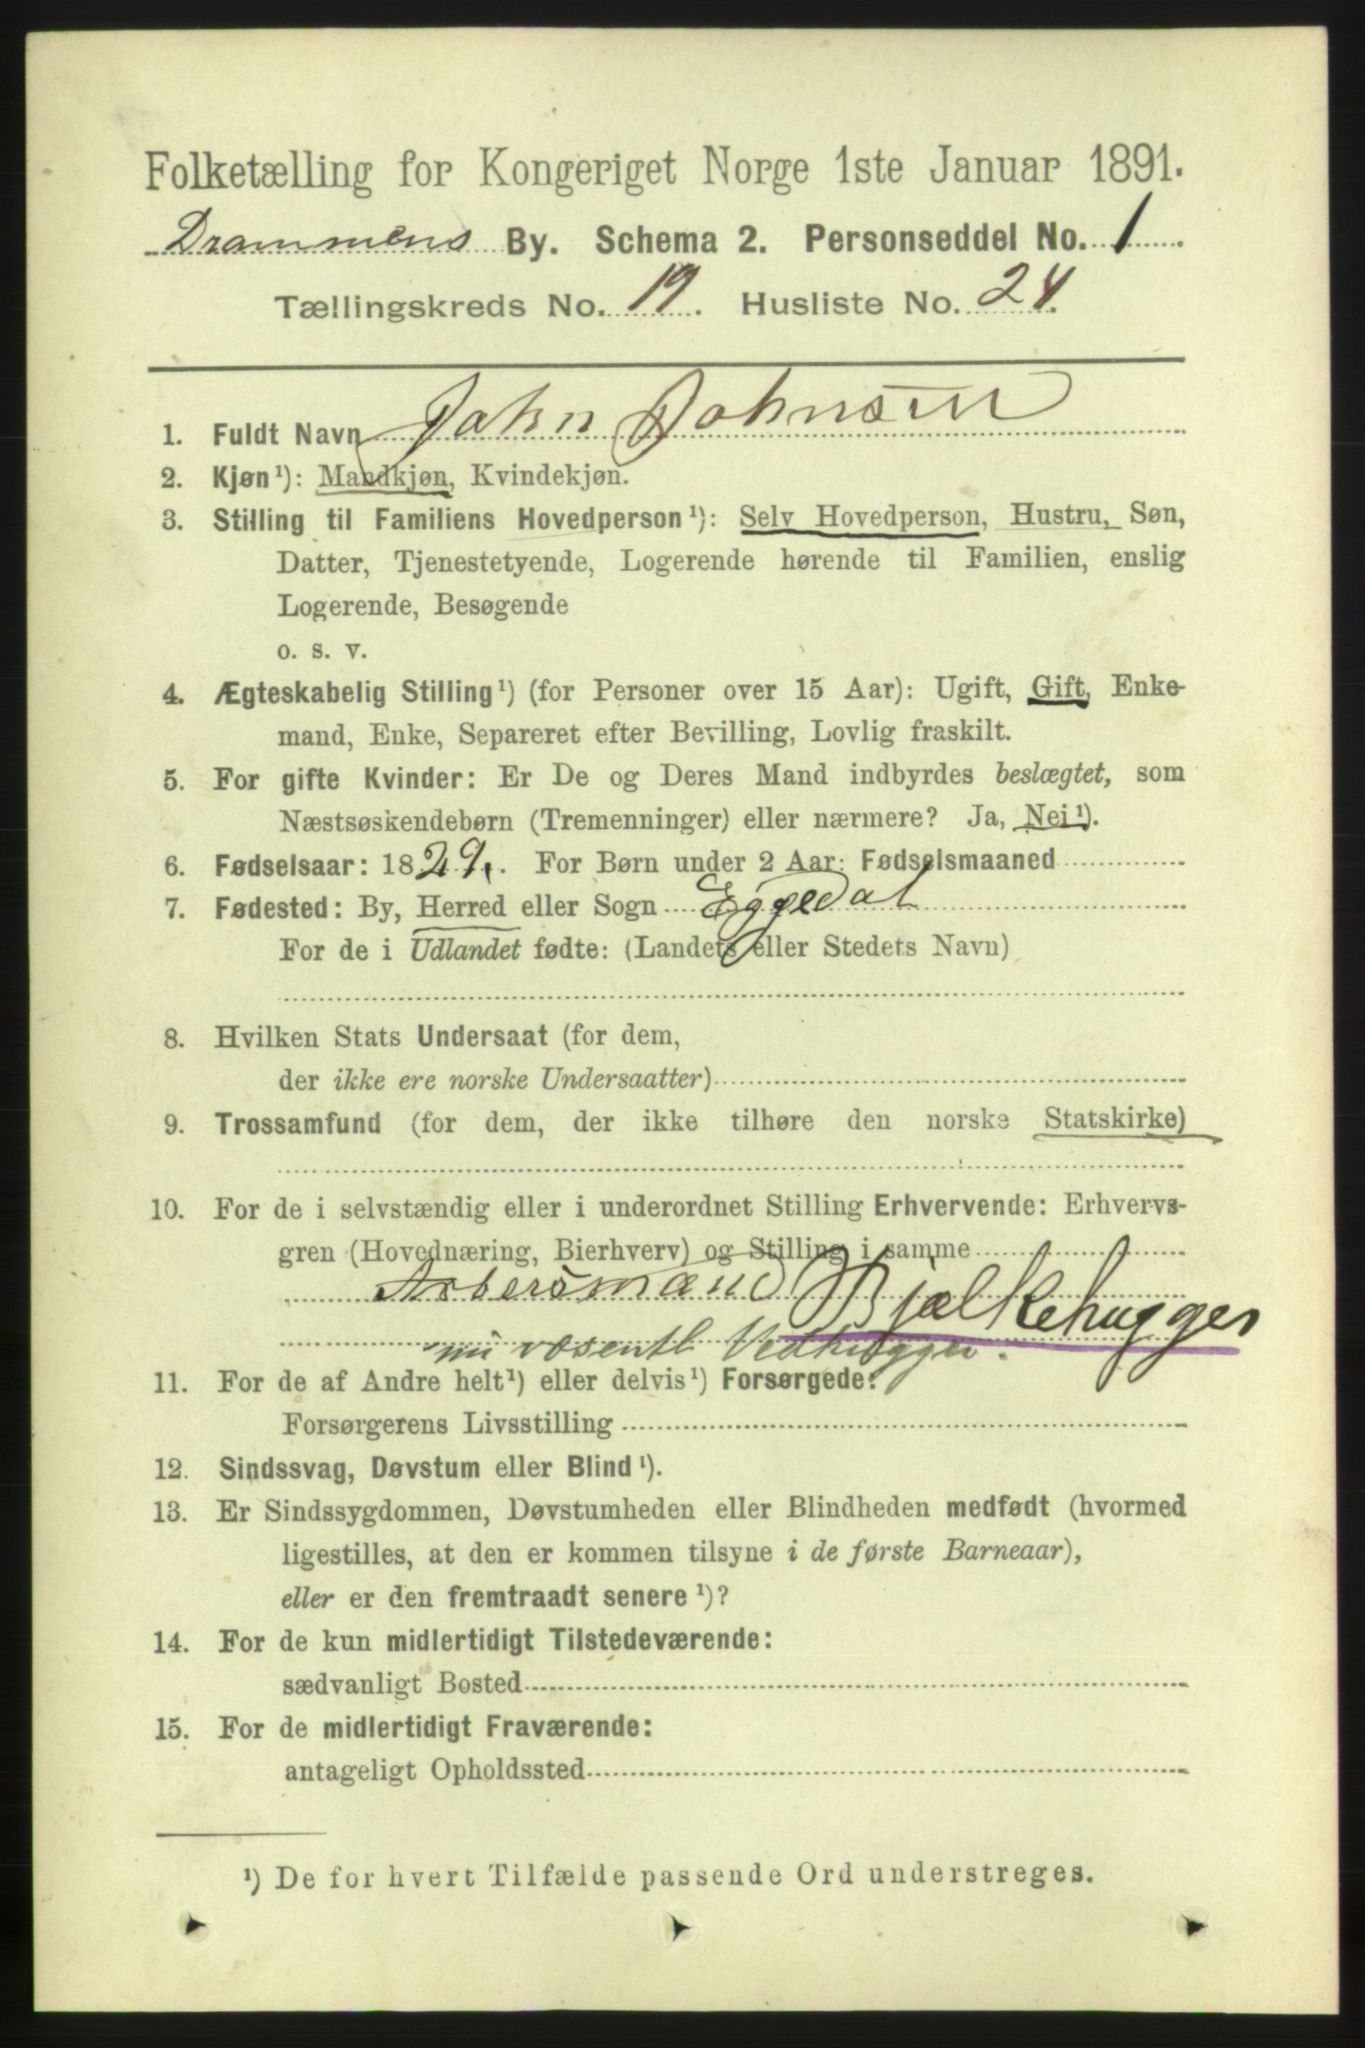 Folketælling for Kongeriget Norge 1ste Januar 1891.
Drammens By. Schema 2. Personseddel No. 1
Tællingskreds No. 19. Husliste No. 24.
1. Fuldt Navn John Johnsen
2. Kjøn¹): Mandkjøn, Kvindekjøn.
3. Stilling til Familiens Hovedperson¹): Selv Hovedperson, Hustru, Søn,
Datter, Tjenestetyende, Logerende hørende til Familien, enslig
Logerende, Besøgende
o. s. v.
4. Ægteskabelig Stilling¹) (for Personer over 15 Aar): Ugift, Gift, Enke-
mand, Enke, Separeret efter Bevilling, Lovlig fraskilt.
5. For gifte Kvinder: Er De og Deres Mand indbyrdes beslægtet, som
Næstsøskendebørn (Tremenninger) eller nærmere? Ja, Nei¹).
6. Fødselsaar: 1829. For Børn under 2 Aar: Fødselsmaaned
7. Fødested: By, Herred eller Sogn Eggedal
For de i Udlandet fødte: (Landets eller Stedets Navn)
8. Hvilken Stats Undersaat (for dem,
der ikke ere norske Undersaatter)
9. Trossamfund (for dem, der ikke tilhøre den norske Statskirke)
10. For de i selvstændig eller i underordnet Stilling Erhvervende: Erhvervs-
gren (Hovednæring, Bierhverv) og Stilling i samme
Arbersmand Bjælkehugger
nu væsentl Vedhugger.
11. For de af Andre helt¹) eller delvis¹) Forsørgede:
Forsørgerens Livsstilling
12. Sindssvag, Døvstum eller Blind¹).
13. Er Sindssygdommen, Døvstumheden eller Blindheden medfødt (hvormed
ligestilles, at den er kommen tilsyne i de første Barneaar),
eller er den fremtraadt senere¹)?
14. For de kun midlertidigt Tilstedeværende:
sædvanligt Bosted
15. For de midlertidigt Fraværende:
antageligt Opholdssted
¹) De for hvert Tilfælde passende Ord understreges.